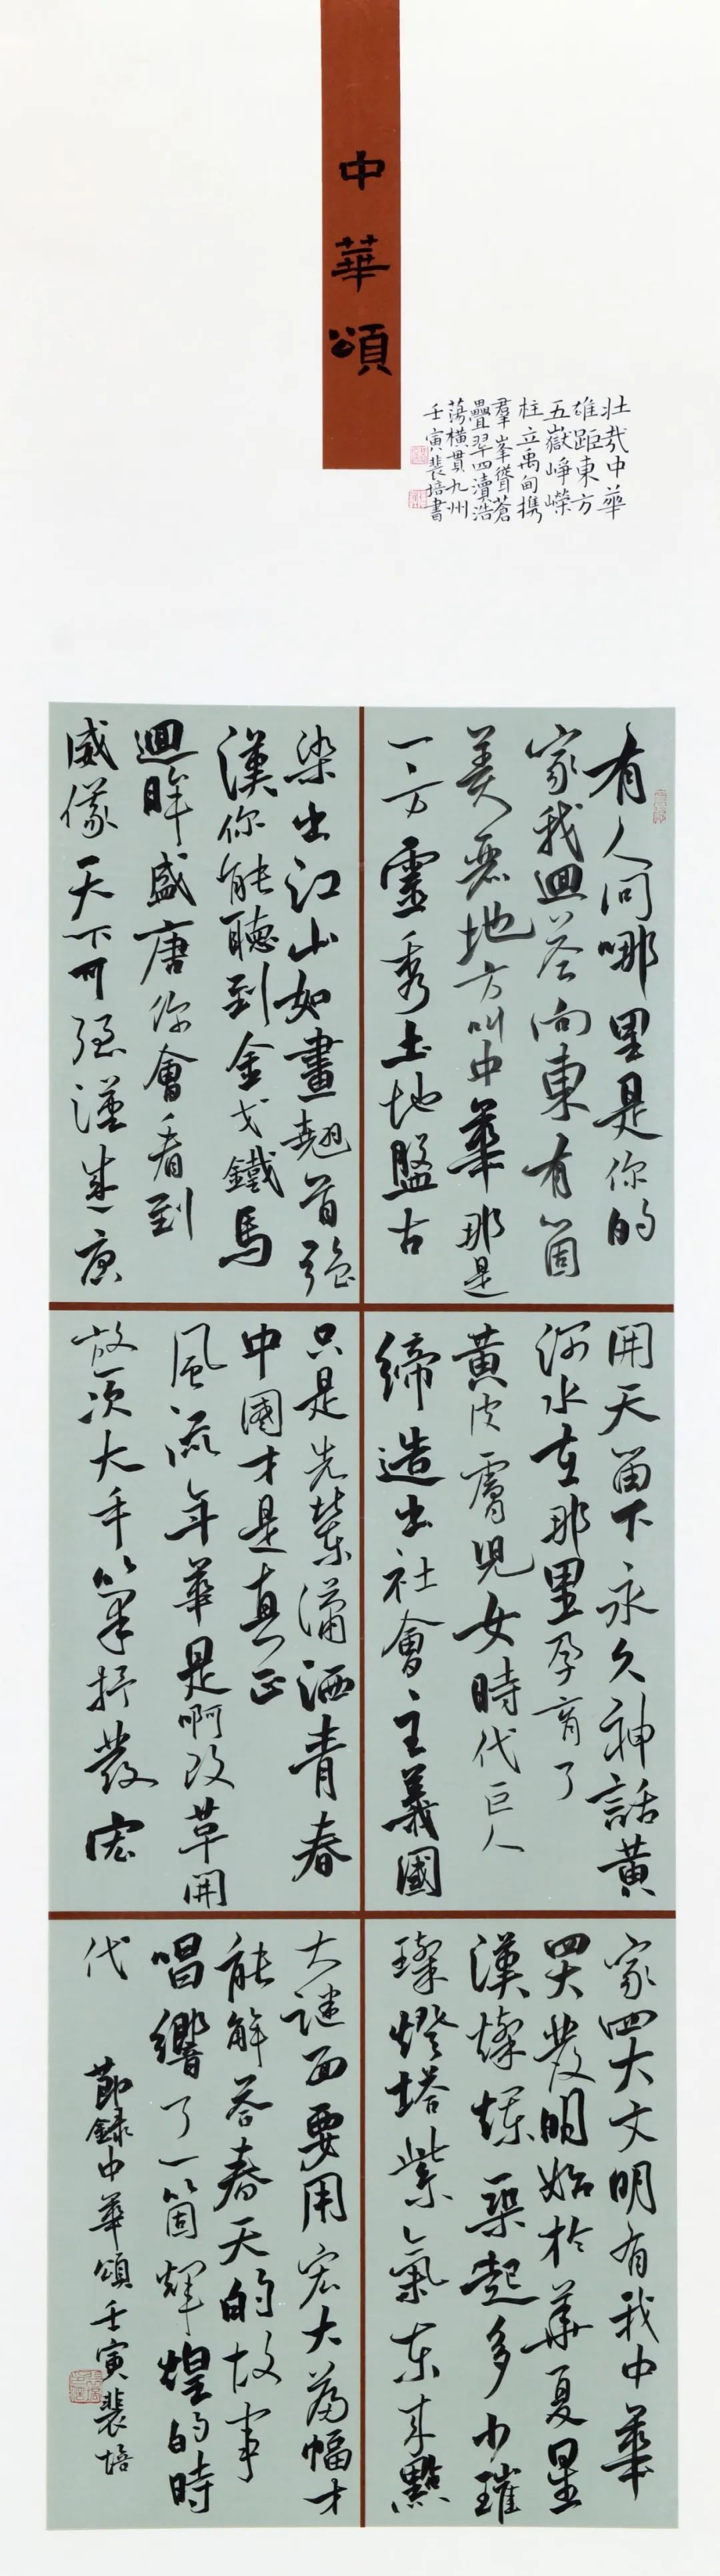 中華頌
壯哉中華
雄距東方
五嶽崢嶸
柱立禹甸攜
羣峯聳蒼
疊翠四瀆浩
蕩橫貫九州
壬寅裴培書
有人问哪里是你的
家我迴答向東有箇
美麗地方叫中華那是
一方靈秀土地盤古
染出江山如畫翹首強
漢你能聽到金戈鐵馬
迴眸盛唐你會看到
威儀天下可強漢盛唐
開天留下永久神話黄
河水在那里孕育了
黄皮膚児女時代巨人
締造出社會主義國
只是先輩瀟洒青春
中國才是真正
風流年華是啊改革開
放須大手筆抒發宏
家四大文明有我中華
四大發明始於華夏星
漢燦爛築起多少璀
璨燈塔紫氣东来點
大謎面要用宏大篇幅才
能解答春天的故事
唱響了一箇輝煌的時
代
節録中華頌壬寅裴培